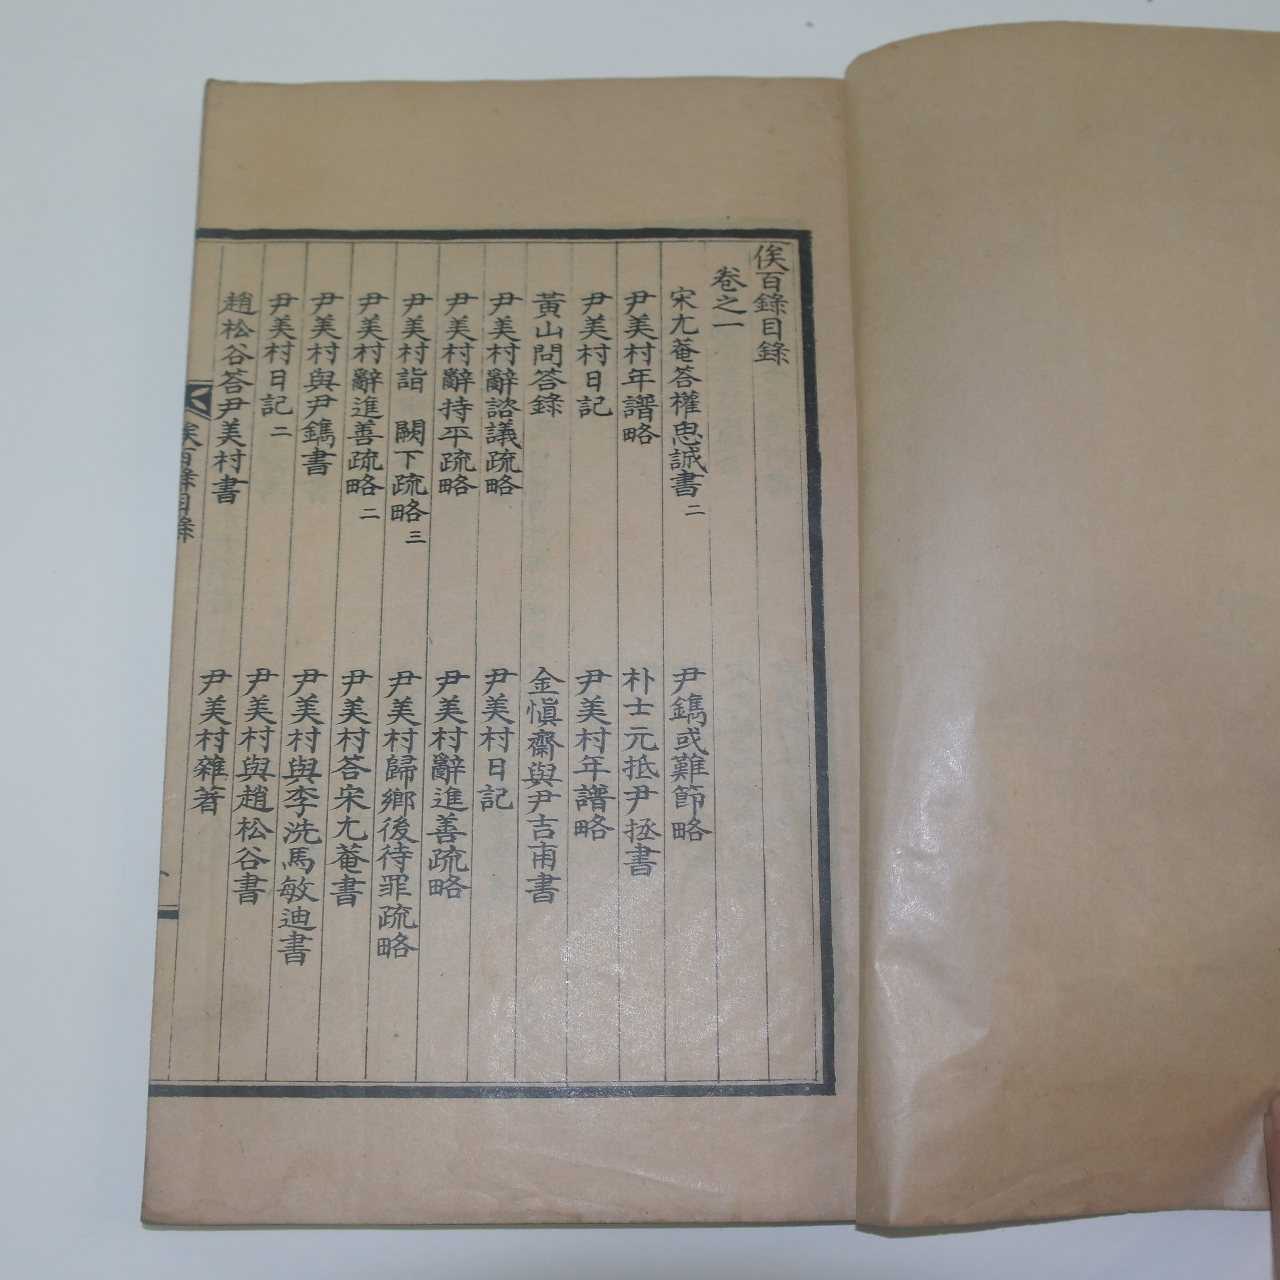 俟百錄目錄
卷之一
宋尤菴答權忠誠書二 尹鑴或難節略
尹美村年譜略 朴士元抵尹拯書
尹美村日記 尹美村年譜略
黃山問答錄 金愼齋與尹吉甫書
尹美村辭諮議疏略 尹美村日記
尹美村辭持平疏略 尹美村辭進善疏略
尹美村詣 闕下疏略三 尹美村歸鄉後待罪疏略
尹美村辭進善疏略二 尹美村答宋尤菴書
尹美村與尹鑴書 尹美村與李洗馬敏迪書
尹美村日記二 尹美村與趙松谷書
趙松谷答尹美村書 尹美村雜著
俟百錄目錄